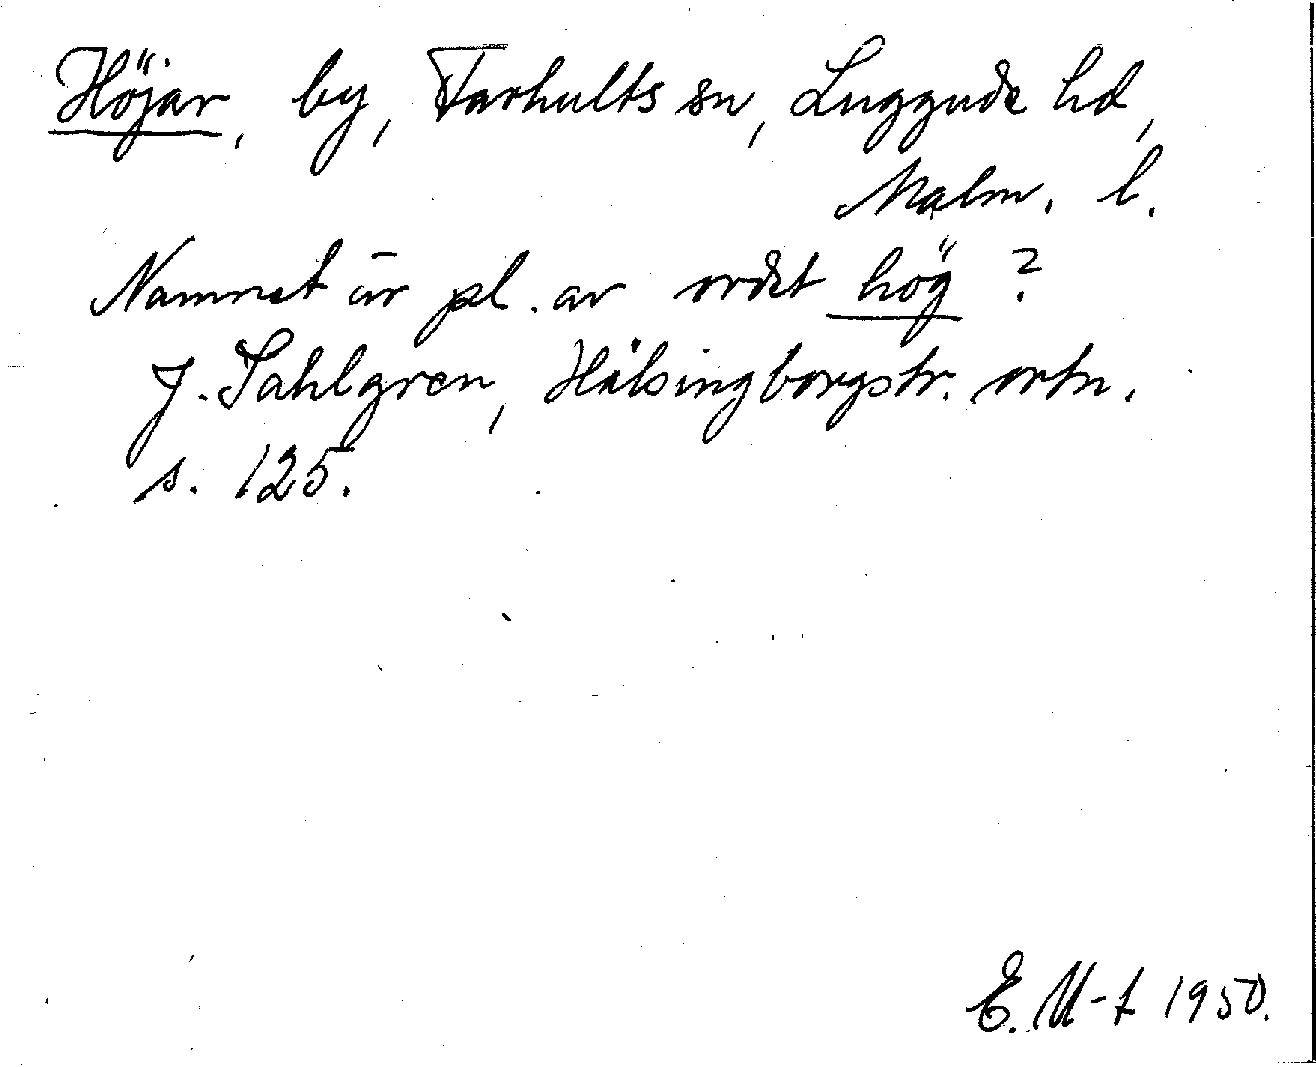 Höjar, by, Farhults sn, Luggude hd,
Malm. l.
Namnet är pl. av ordet hög?
J. Sahlgren, Hälsingborgstr. ortn.
s. 125.
E. M-t 1950.